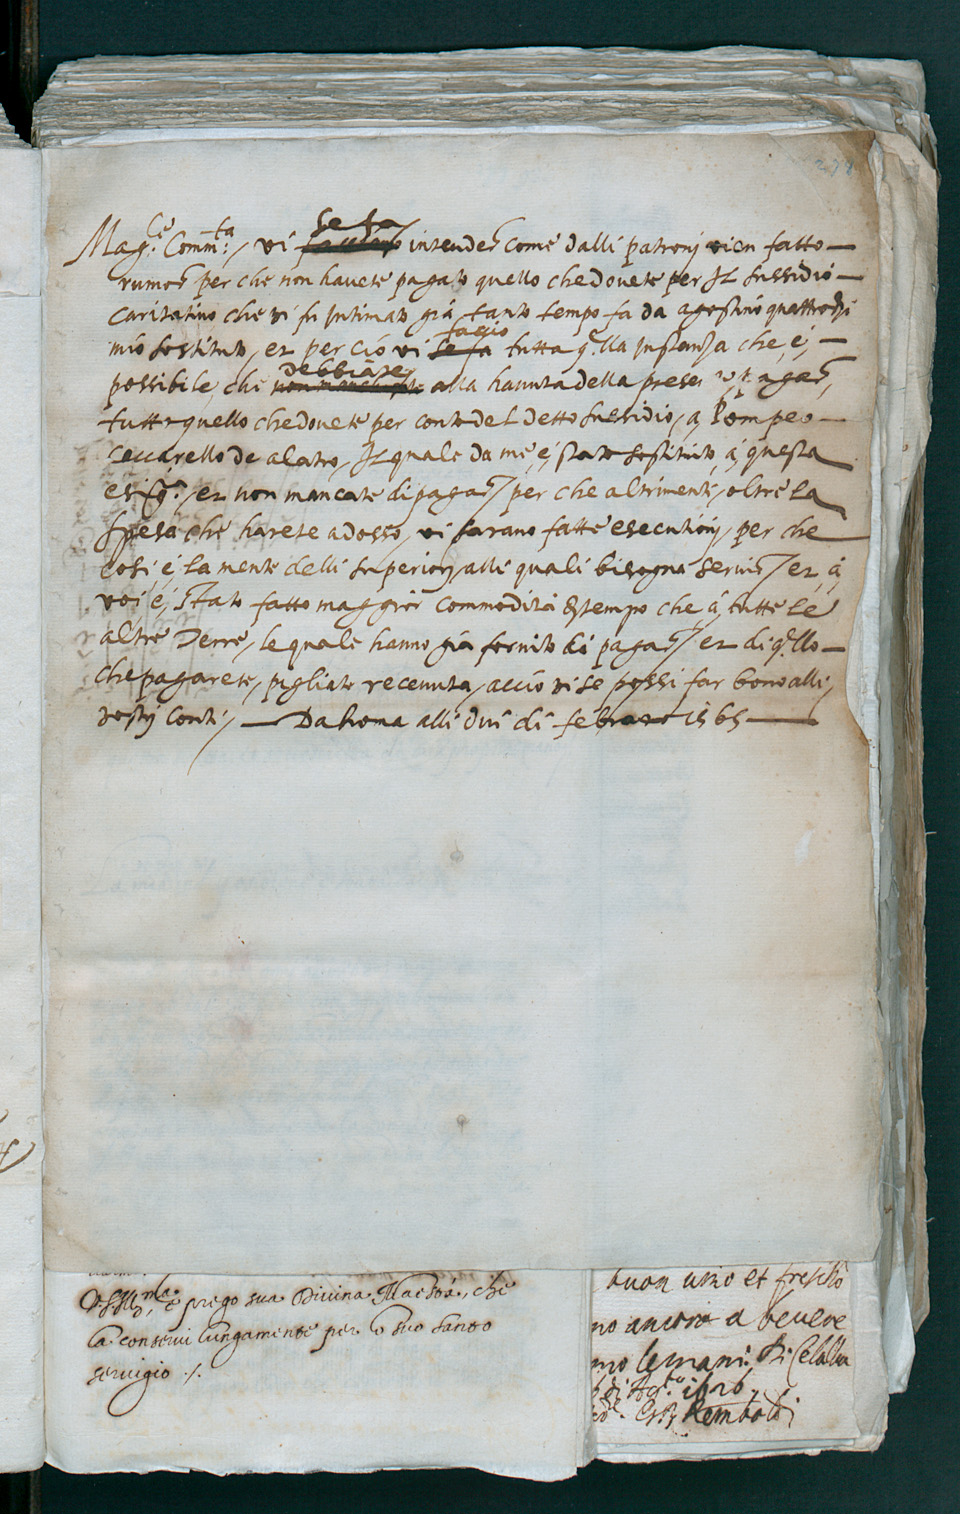 278
Mag.ce Comm.ta, vi se fa intender come dalli patronj vien fatto
rumor per che non havete pagato quello che dovete per Il sussidio
caritativo che vi fu Intimato già tanto tempo fa da agostino
mio sostituto, et per ciò vi faccio tutta q.lla instanza che, é,
possibile, che debbiate alla havuta della presente, pagar,
tutto quello che dovete per conto del detto sussidio, a Pompeo
ceccarello de alatro, Il quale da me, é, stato sostituto, á, questa
et non mancate di pagar, per che altrimenti, oltre la
spesa che harete adosso, vi sarano fatte esecutionj, per che
cosi, é, la mente delli superiorj, alli quali bisogna servir, et, á,
voi, é, stato fatto maggior commodità et tempo che á, tutte le
altre Terre, le quale hanno già fornito di pagar, et di q.llo
che pagarete, pigliate receuuta, acciò vi se possi far bono alli,
vostrj conti, Da Roma alli dui di febraro 1565
prego sua Divina Maestà, che
la conservi lungamente per lo suo santo
servigio ./.
buon vino et fresco
ancora a bevere
1626
Remboldi